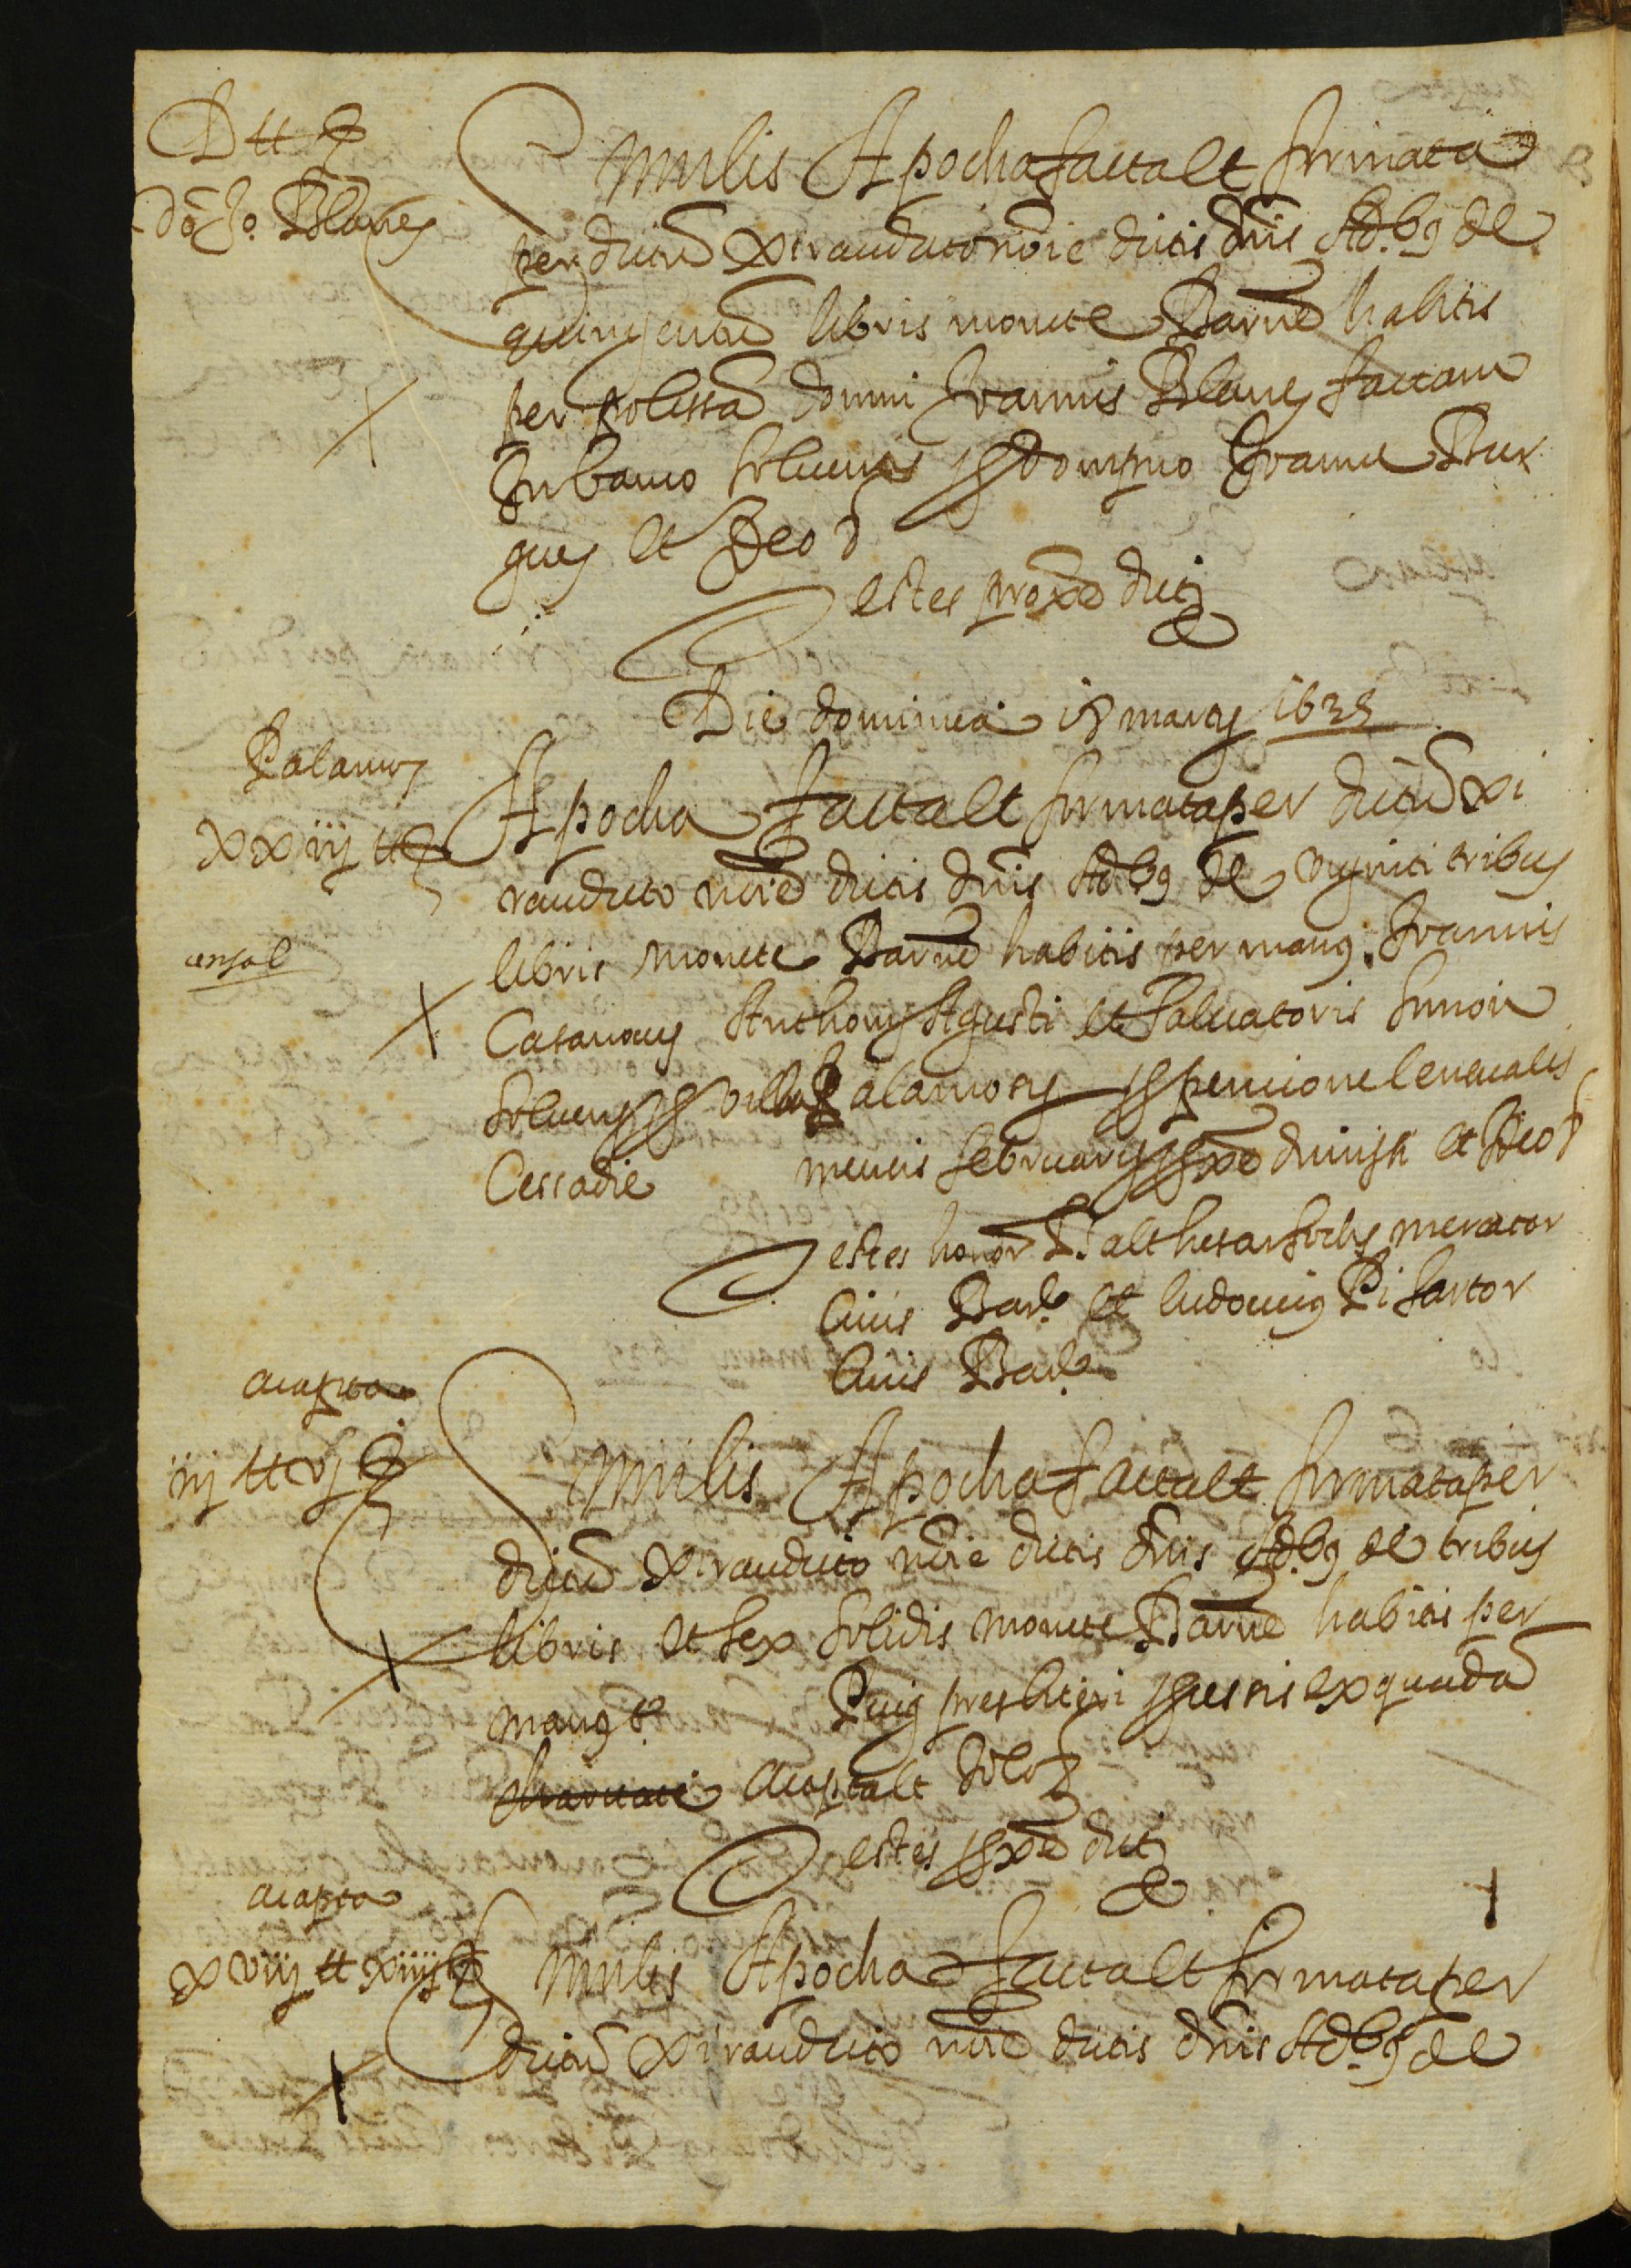 D tt ß
do Jo. Blanes
Similis Apocha facta et firmata
per dictũ Xirau dicto noīe dictis dñis Ad.bꝰ de
quingentis libris monete Barñe habitis
per polissa domni Joannis Blanes factam
In banco solvens pro dompno Joanne Bur
gues et Ideo &
Testes proxe dicti
Die dominica 18 martij 1635
Palamos
xxiij tt ß
censal
Apocha facta et firmata per dictũ Xi
rau dicto noīe dictis dñis Ad.bꝰ de viginti tribus
libris monete Barñe habitis per manꝰ Joannis
Casanovas Anthonij Agusti et Salvatoris
solvens pro villa Palamosij pro pencione censualis
Cessadie mensis februarij pxe et Ideo &
Testes honor Balthesar mercator
Civis Barñe et ludovicꝰ Pi sartor
Civis Barñe
acapta
iij tt vj ß
Similis Apocha facta et firmata per
dictũ Xirau dicto noīe dictis dñis Ad.bꝰ de tribus
libris et sex solidis monete Barñe habitis per
manꝰ R. Puig presbiteri ex quadã
acapta et Ideo &
Testes pxe dicti
acapta
xviij tt xiiij ß
Similis Apocha facta et firmata per
dictũ Xirau dicto noīe dictis dñis Ad.bꝰ de